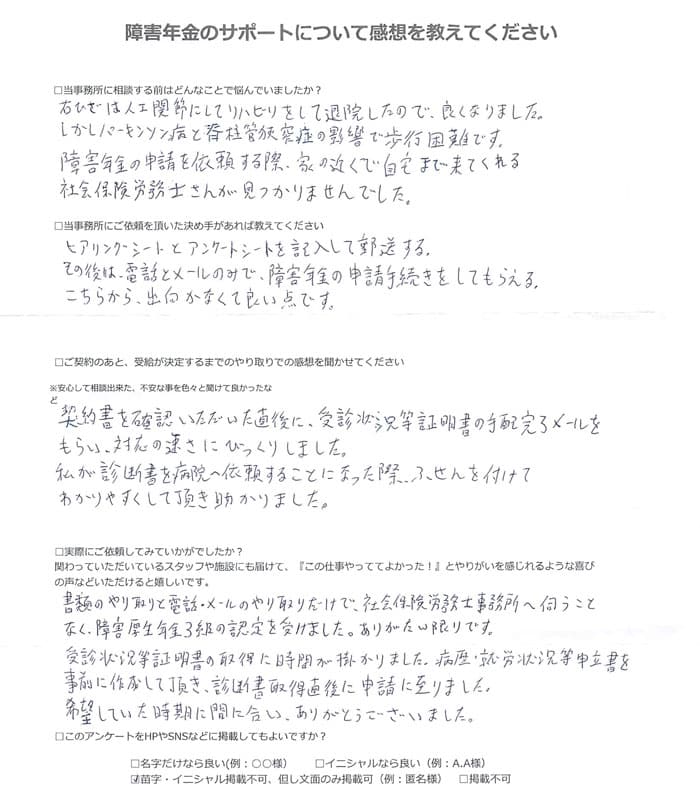 障害年金のサポートについて感想を教えてください
□当事務所に相談する前はどんなことで悩んでいましたか？
右ひざは人工関節にしてリハビリをして退院したので、良くなりました。
しかしパーキンソン病と脊柱管狭窄症の影響で歩行困難です。
障害年金の申請を依頼する際、家の近くで自宅まで来てくれる
社会保険労務士さんが見つかりませんでした。
□当事務所にご依頼を頂いた決め手があれば教えてください
ヒアリングシートとアンケートシートを記入して郵送する。
その後は、電話とメールのみで、障害年金の申請手続きをしてもらえる。
こちらから、出向かなくて良い点です。
□ご契約のあと、受給が決定するまでのやり取りでの感想を聞かせてください
※安心して相談出来た、不安な事を色々と聞けて良かったな
ど
契約書を確認いただいた直後に、受診状況等証明書の手配完了メールを
もらい、対応の速さにびっくりしました。
私が診断書を病院へ依頼することになった際、ふせんを付けて
わかりやすくして頂き助かりました。
□実際にご依頼してみていかがでしたか？
関わっていただいているスタッフや施設にも届けて、『この仕事やっててよかった！』とやりがいを感じれるような喜び
の声などいただけると嬉しいです。
書類のやり取りと電話・メールのやり取りだけで、社会保険労務士事務所へ伺うこと
なく、障害厚生年金3級の認定を受けました。ありがたい限りです。
受診状況等証明書の取得に時間が掛かりました。病歴・就労状況等申立書を
事前に作成して頂き、診断書取得直後に申請に至りました。
希望していた時期に間に合い、ありがとうございました。
□このアンケートをHPやSNSなどに掲載してもよいですか？
□名字だけなら良い(例：〇〇様） □イニシャルなら良い（例：A.A様）
☑苗字・イニシャル掲載不可、但し文面のみ掲載可（例：匿名様） □掲載不可